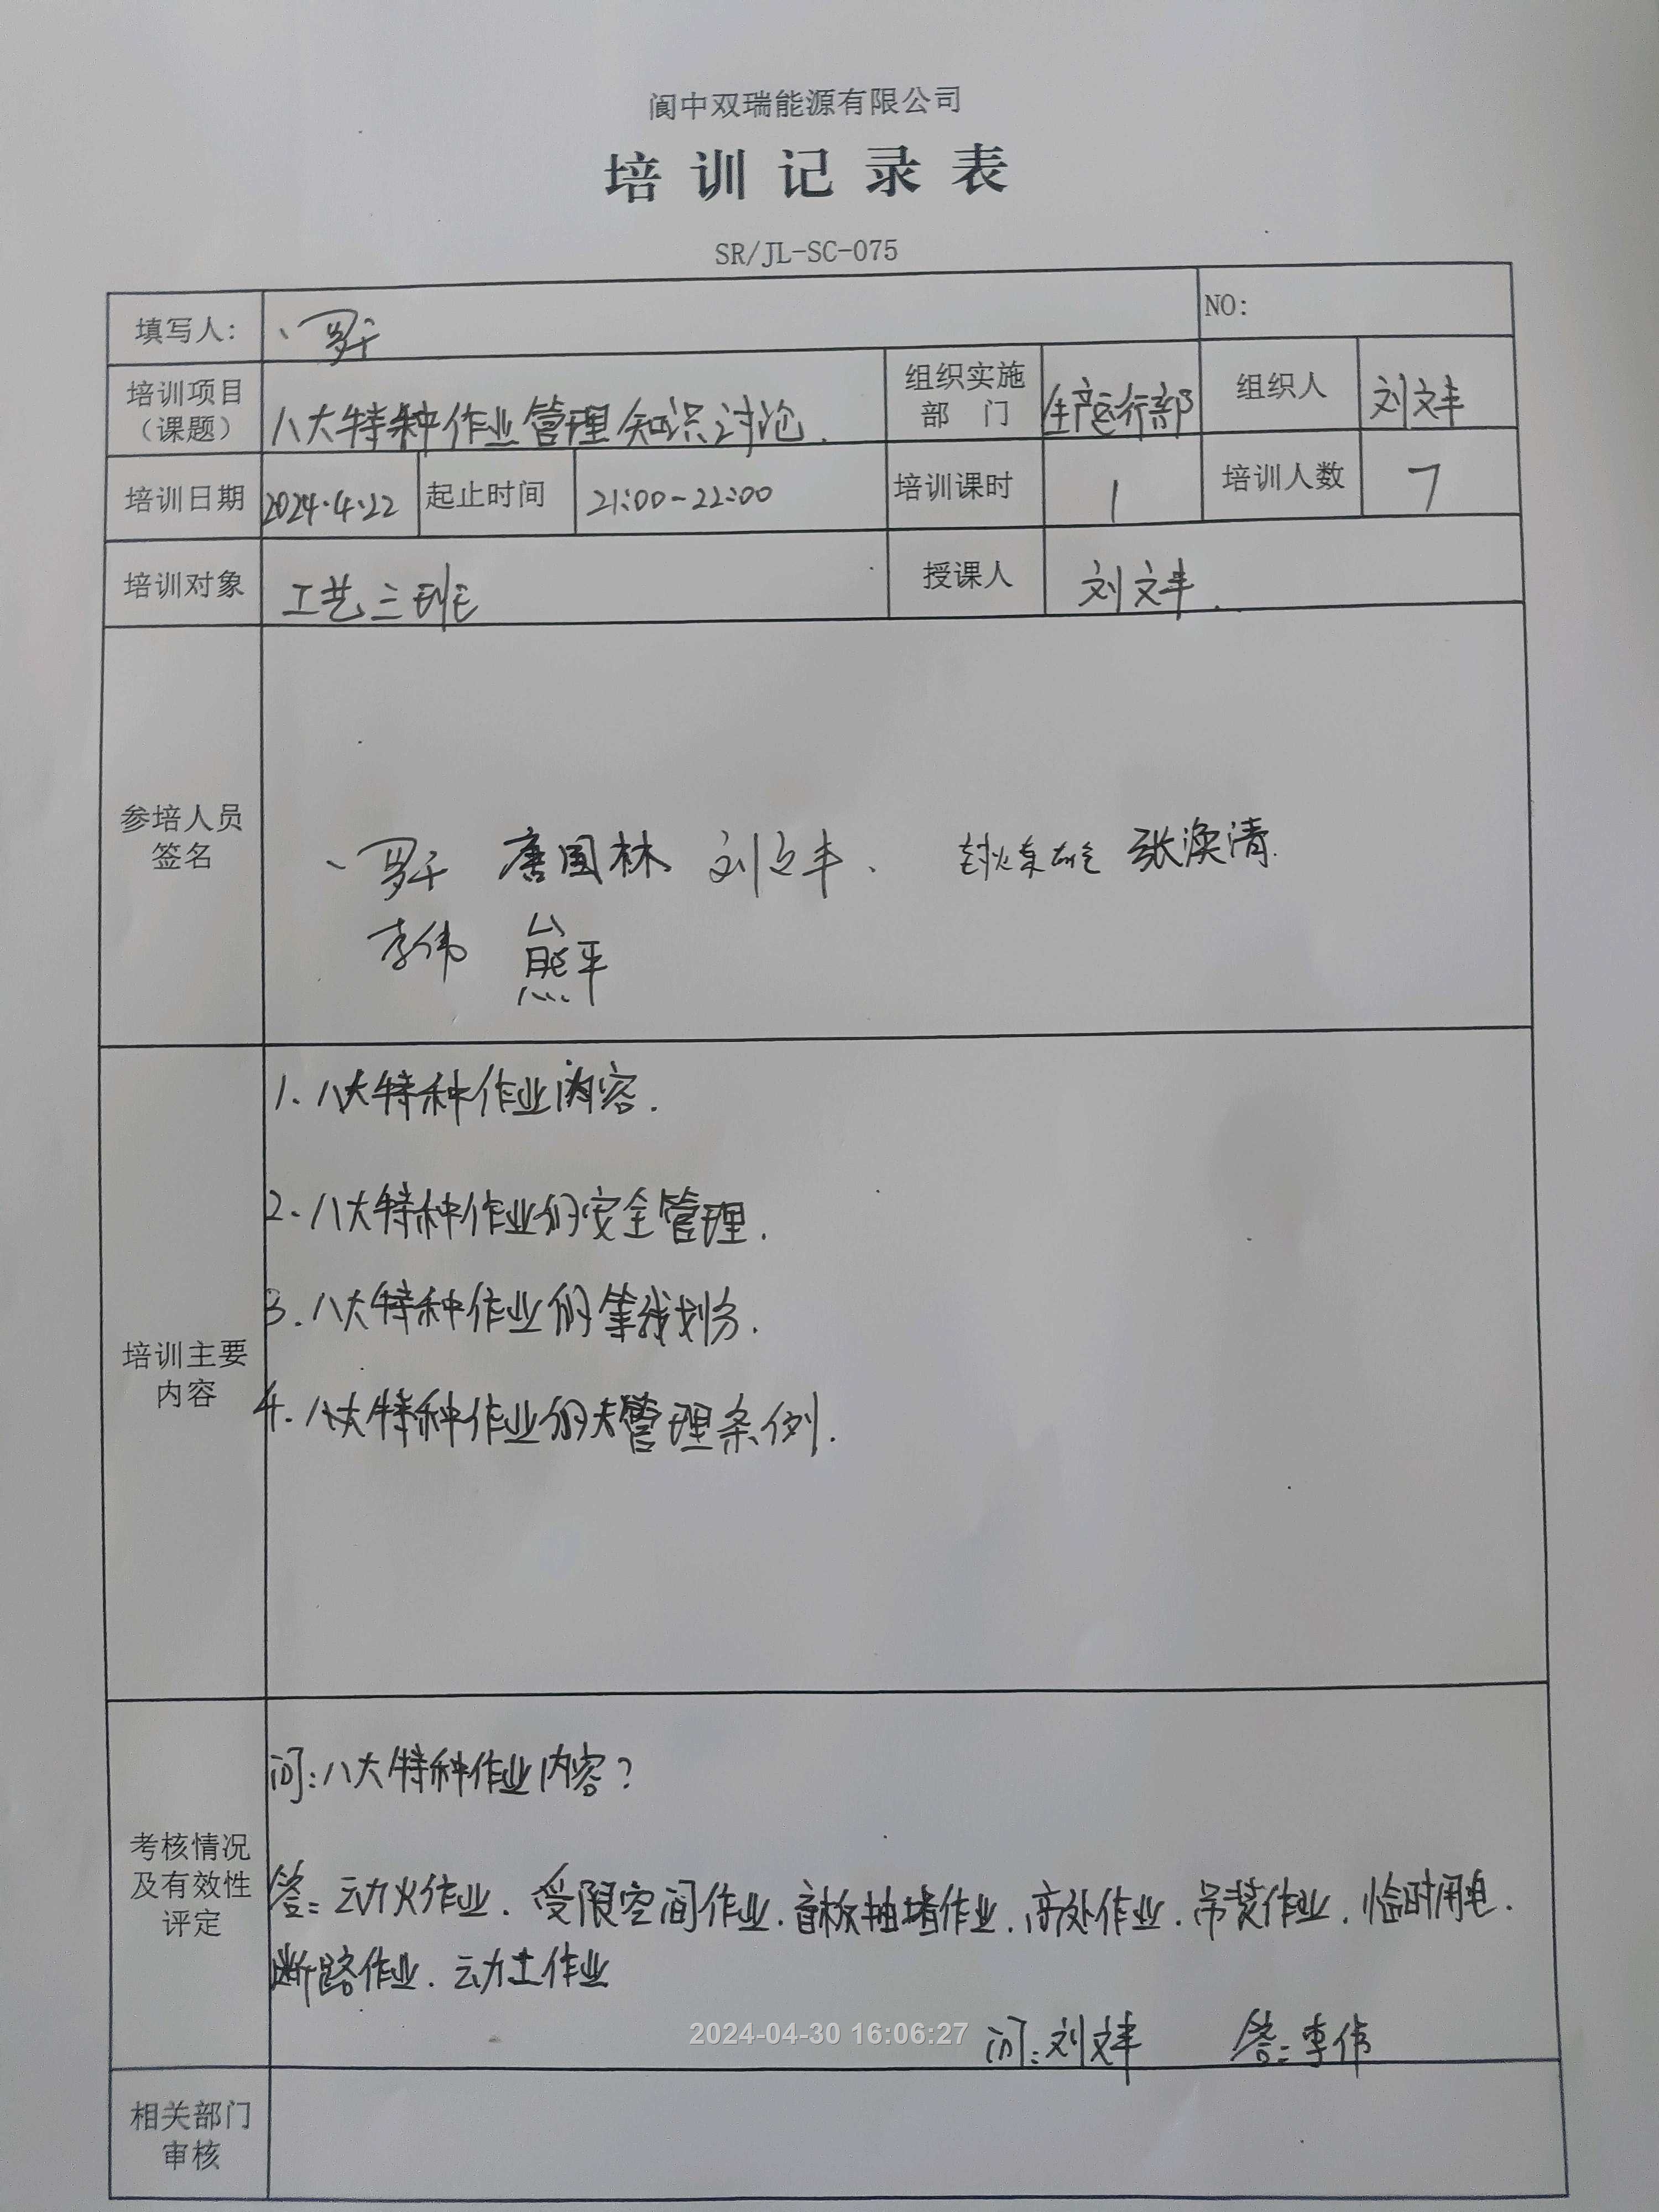 阆中双瑞能源有限公司
培训记录表
SR/JL-SC-075
填写人: 罗千 NO:
培训项目（课题） 八大特种作业管理知识讨论. 组织实施部门 生产运行部 组织人 刘文丰
培训日期 2024.4.22 起止时间 21:00-22:00 培训课时 1 培训人数 7
培训对象 工艺三班 授课人 刘文丰.
参培人员签名
罗千 唐国林 刘文丰、 张涣清.
李伟 熊平
培训主要内容
1. 八大特种作业内容.
2. 八大特种作业的安全管理.
3. 八大特种作业的等级划分.
4. 八大特种作业的管理条例.
考核情况及有效性评定
问:八大特种作业内容?
答:动火作业.受限空间作业.盲板抽堵作业.高处作业.吊装作业.临时用电.
断路作业.动土作业
2024-04-30 16:06:27
问:刘文丰 答:李伟
相关部门审核